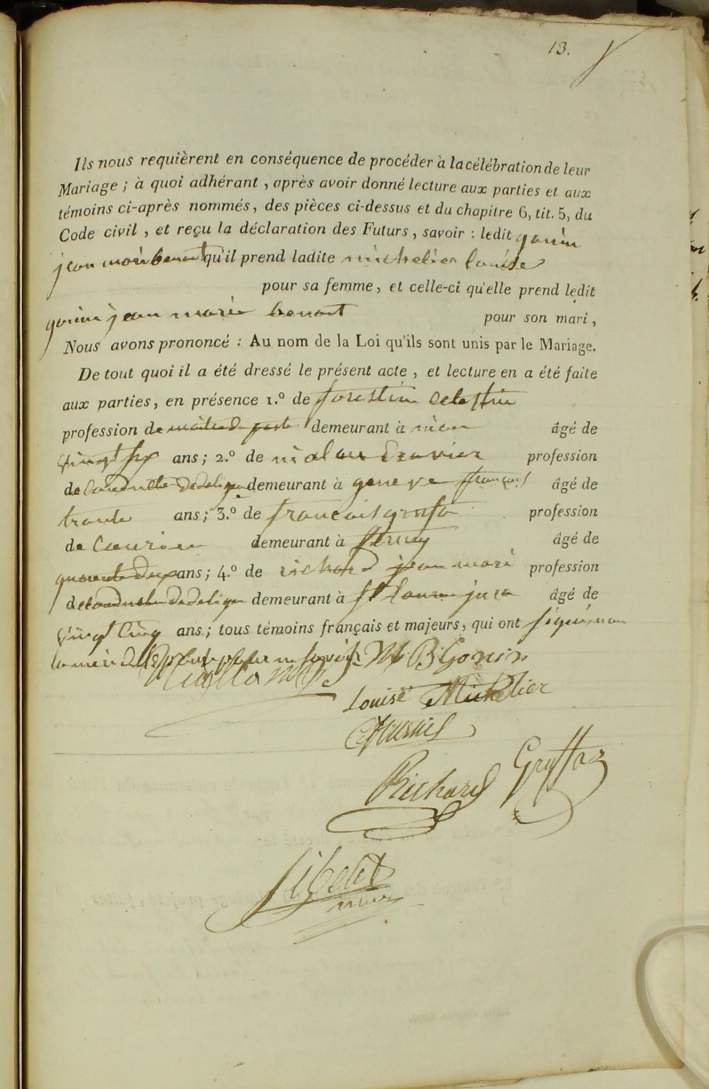 13.
Ils nous requièrent en conséquence de procéder à la célébration de leur
Mariage ; à quoi adhérant , après avoir donné lecture aux parties et aux
témoins ci-après nommés, des pièces ci-dessus et du chapitre 6, tit. 5, du
Code civil , et reçu la déclaration des Futurs , savoir : ledit gonin
jean marie benoit qu'il prend ladite michelier louise
pour sa femme , et celle-ci qu'elle prend ledit
gonin jean marie benoit pour son mari ,
Nous avons prononcé : Au nom de la Loi qu'ils sont unis par le Mariage.
De tout quoi il a été dressé le présent acte , et lecture en a été faite
aux parties, en présence 1.º de forestier
profession de demeurant à âgé de
vingt six ans ; 2.º de nicolas profession
de demeurant à geneve français âgé de
trente ans ; 3.º de francois profession
de demeurant à âgé de
quarante deux ans ; 4.º de richard jean marie profession
de demeurant à jura âgé de
vingt cinq ans ; tous témoins français et majeurs, qui ont signé non
la mère de M B Gonin
Louise Michelier
Richard Gruffaz